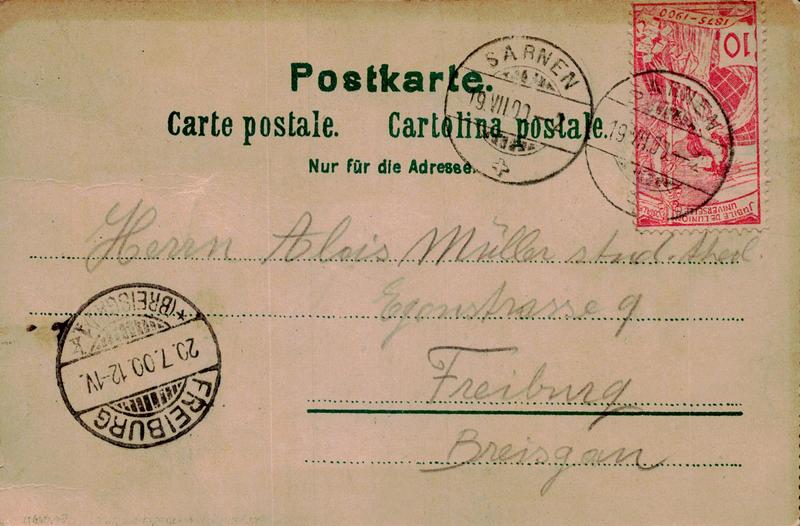 Postkarte.
Carte postale. Cartolina postale.
Nur für die Adresse.
SARNEN
19.VII.00.
SARNEN
19.VII.00.
1875-1900
10
JUBILÉ DE L'UNION
UNIVERSELLE
Herrn Alois Müller stud. theol.
Egonstrasse 9
Freiburg
Breisgau
FREIBURG
20.7.00.12-1V.
*(BREISGAU)*